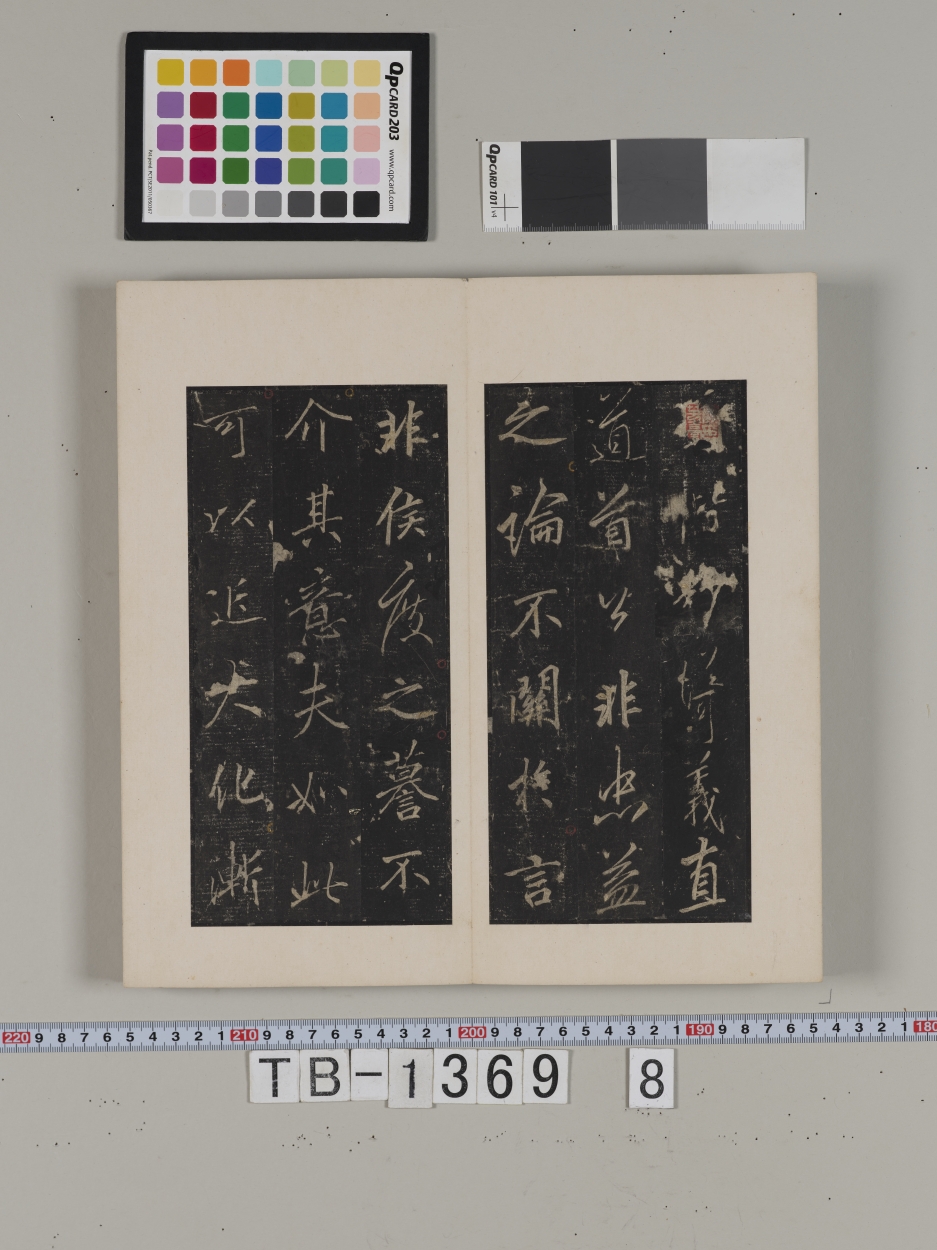 QpCARD 203 www.qpcard.com
QpCARD 101 v4
妙倚義直
道首公非忠益
之論不關於言
非侯度之謩不
介其意夫如此
可以近大化漸
220 9 8 7 6 5 4 3 2 1 210 9 8 7 6 5 4 3 2 1 200 9 8 7 6 5 4 3 2 1 190 9 8 7 6 5 4 3 2 1 180
TB-1369 8